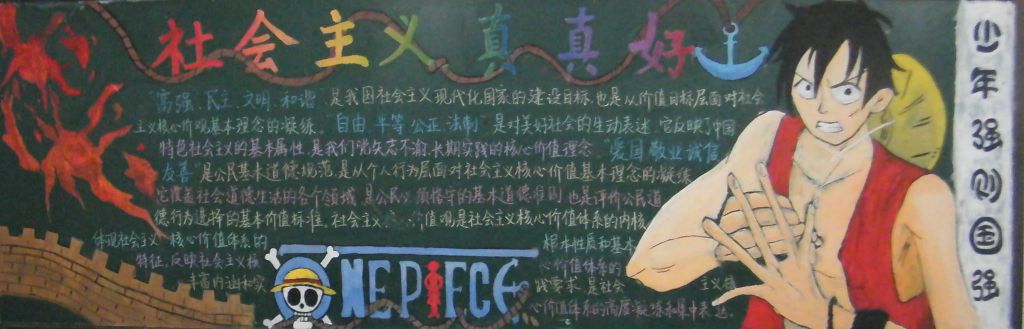 社会主义真真好
富强、民主、文明、和谐 是我国社会主义现代化国家的建设目标,也是从价值目标层面对社会
主义核心价观基本理念的凝练。自由、平等、公正、法制 是对美好社会的生动表述,它反映了中国
特色社会主义的基本属性,是我们党矢志不渝,长期实践的核心价值理念。爱国、敬业、诚信、
友善 是公民基本道德规范,是从个人行为层面对社会主义核心价值基本理念的凝练。
它覆盖社会道德生活的各个领域,是公民必须恪守的基本道德准则,也是评价公民道
德行为选择的基本价值标准。社会主义 值观是社会主义核心价值体系的内核
体现社会主义核心价值体系的 根本性质和基本
特征,反映社会主义核 心价值体系的
丰富内涵和实 践要求,是社会 主义核
心价值体系的高度凝练和集中表达。
ONE PIECE
少年强则国强